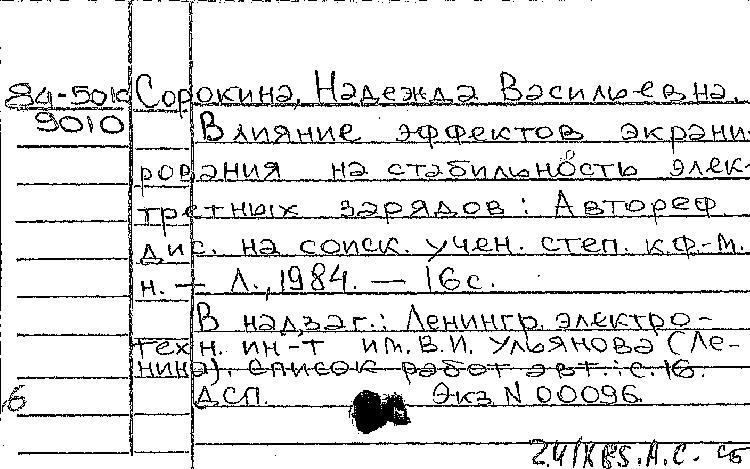 84-5010 Сорокина, Надежда Васильевна.
9010 Влияние эффектов экрани-
рования на стабильность элек-
третных зарядов: Автореф.
дис. на соиск. учен. степ. к.ф-м.
н. — Л., 1984. — 16 с.
В надзаг.: Ленингр. электро-
техн. ин-т им. В.И. Ульянова (Ле-
нина). Список работ авт.: с.16.
6 ДСП. Экз N 00096